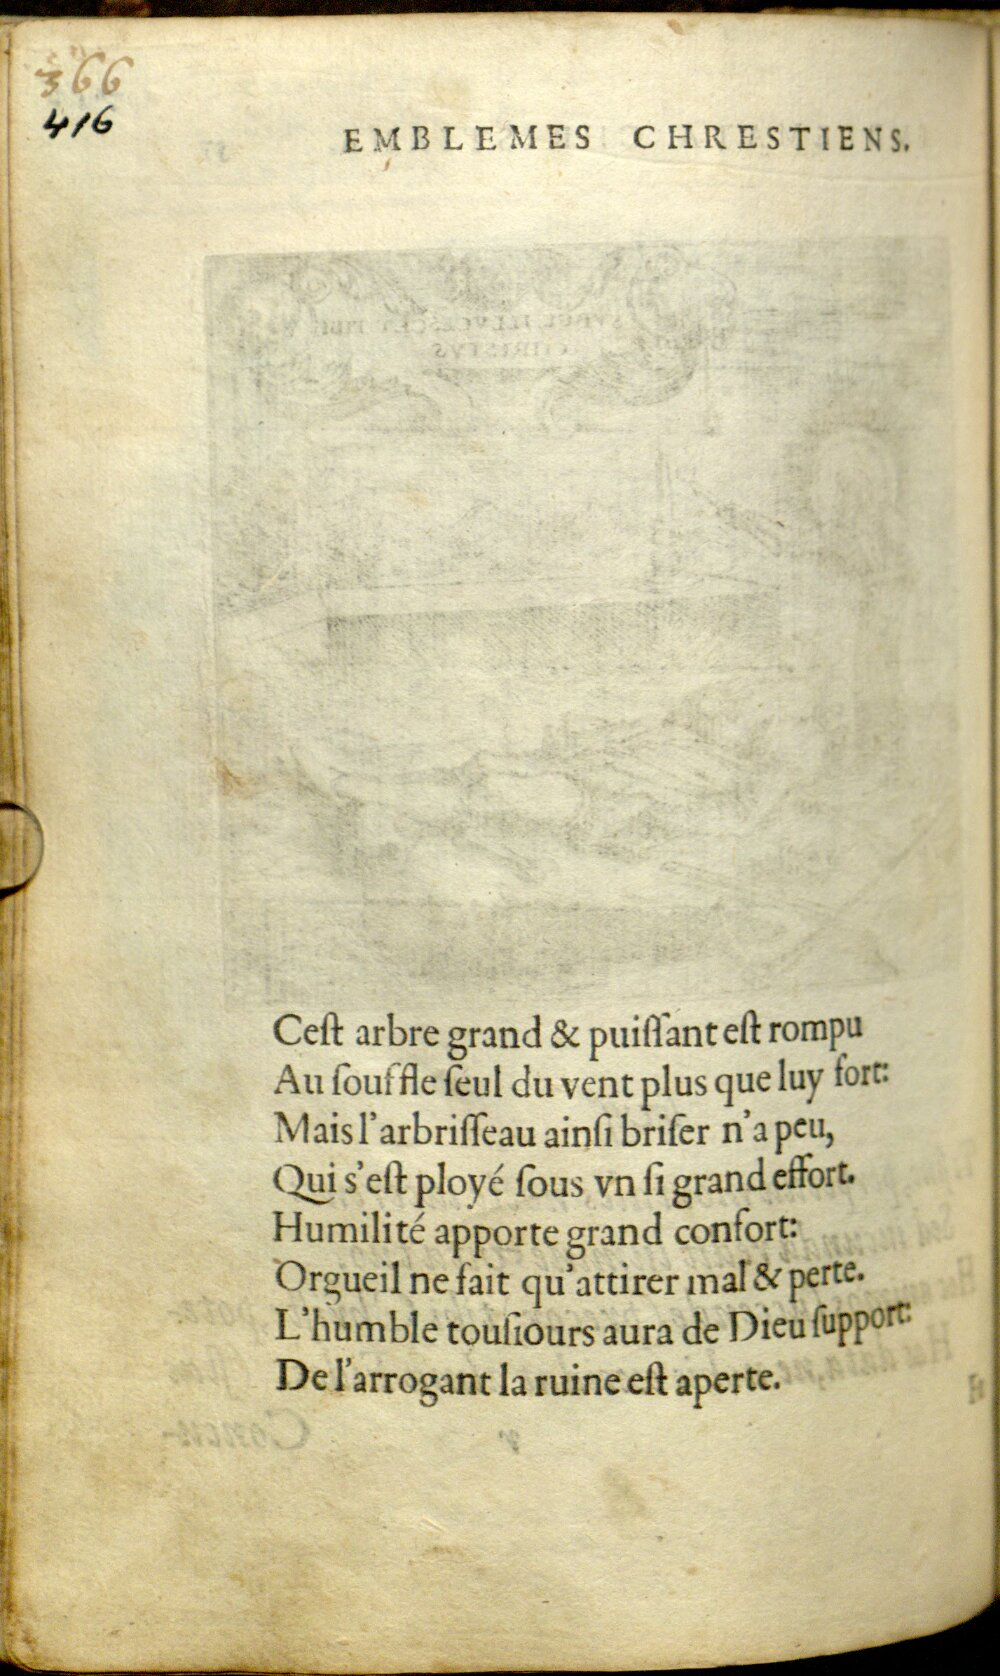 366
416
EMBLEMES CHRESTIENS.
Ceſt arbre grand & puiſſant eſt rompu
Au ſouffle ſeul du vent plus que luy fort:
Mais l'arbriſſeau ainſi briſer n'a peu,
Qui s'eſt ployé ſous vn ſi grand effort.
Humilité apporte grand confort:
Orgueil ne fait qu'attirer mal & perte.
L'humble touſiours aura de Dieu ſupport:
De l'arrogant la ruine eſt aperte.